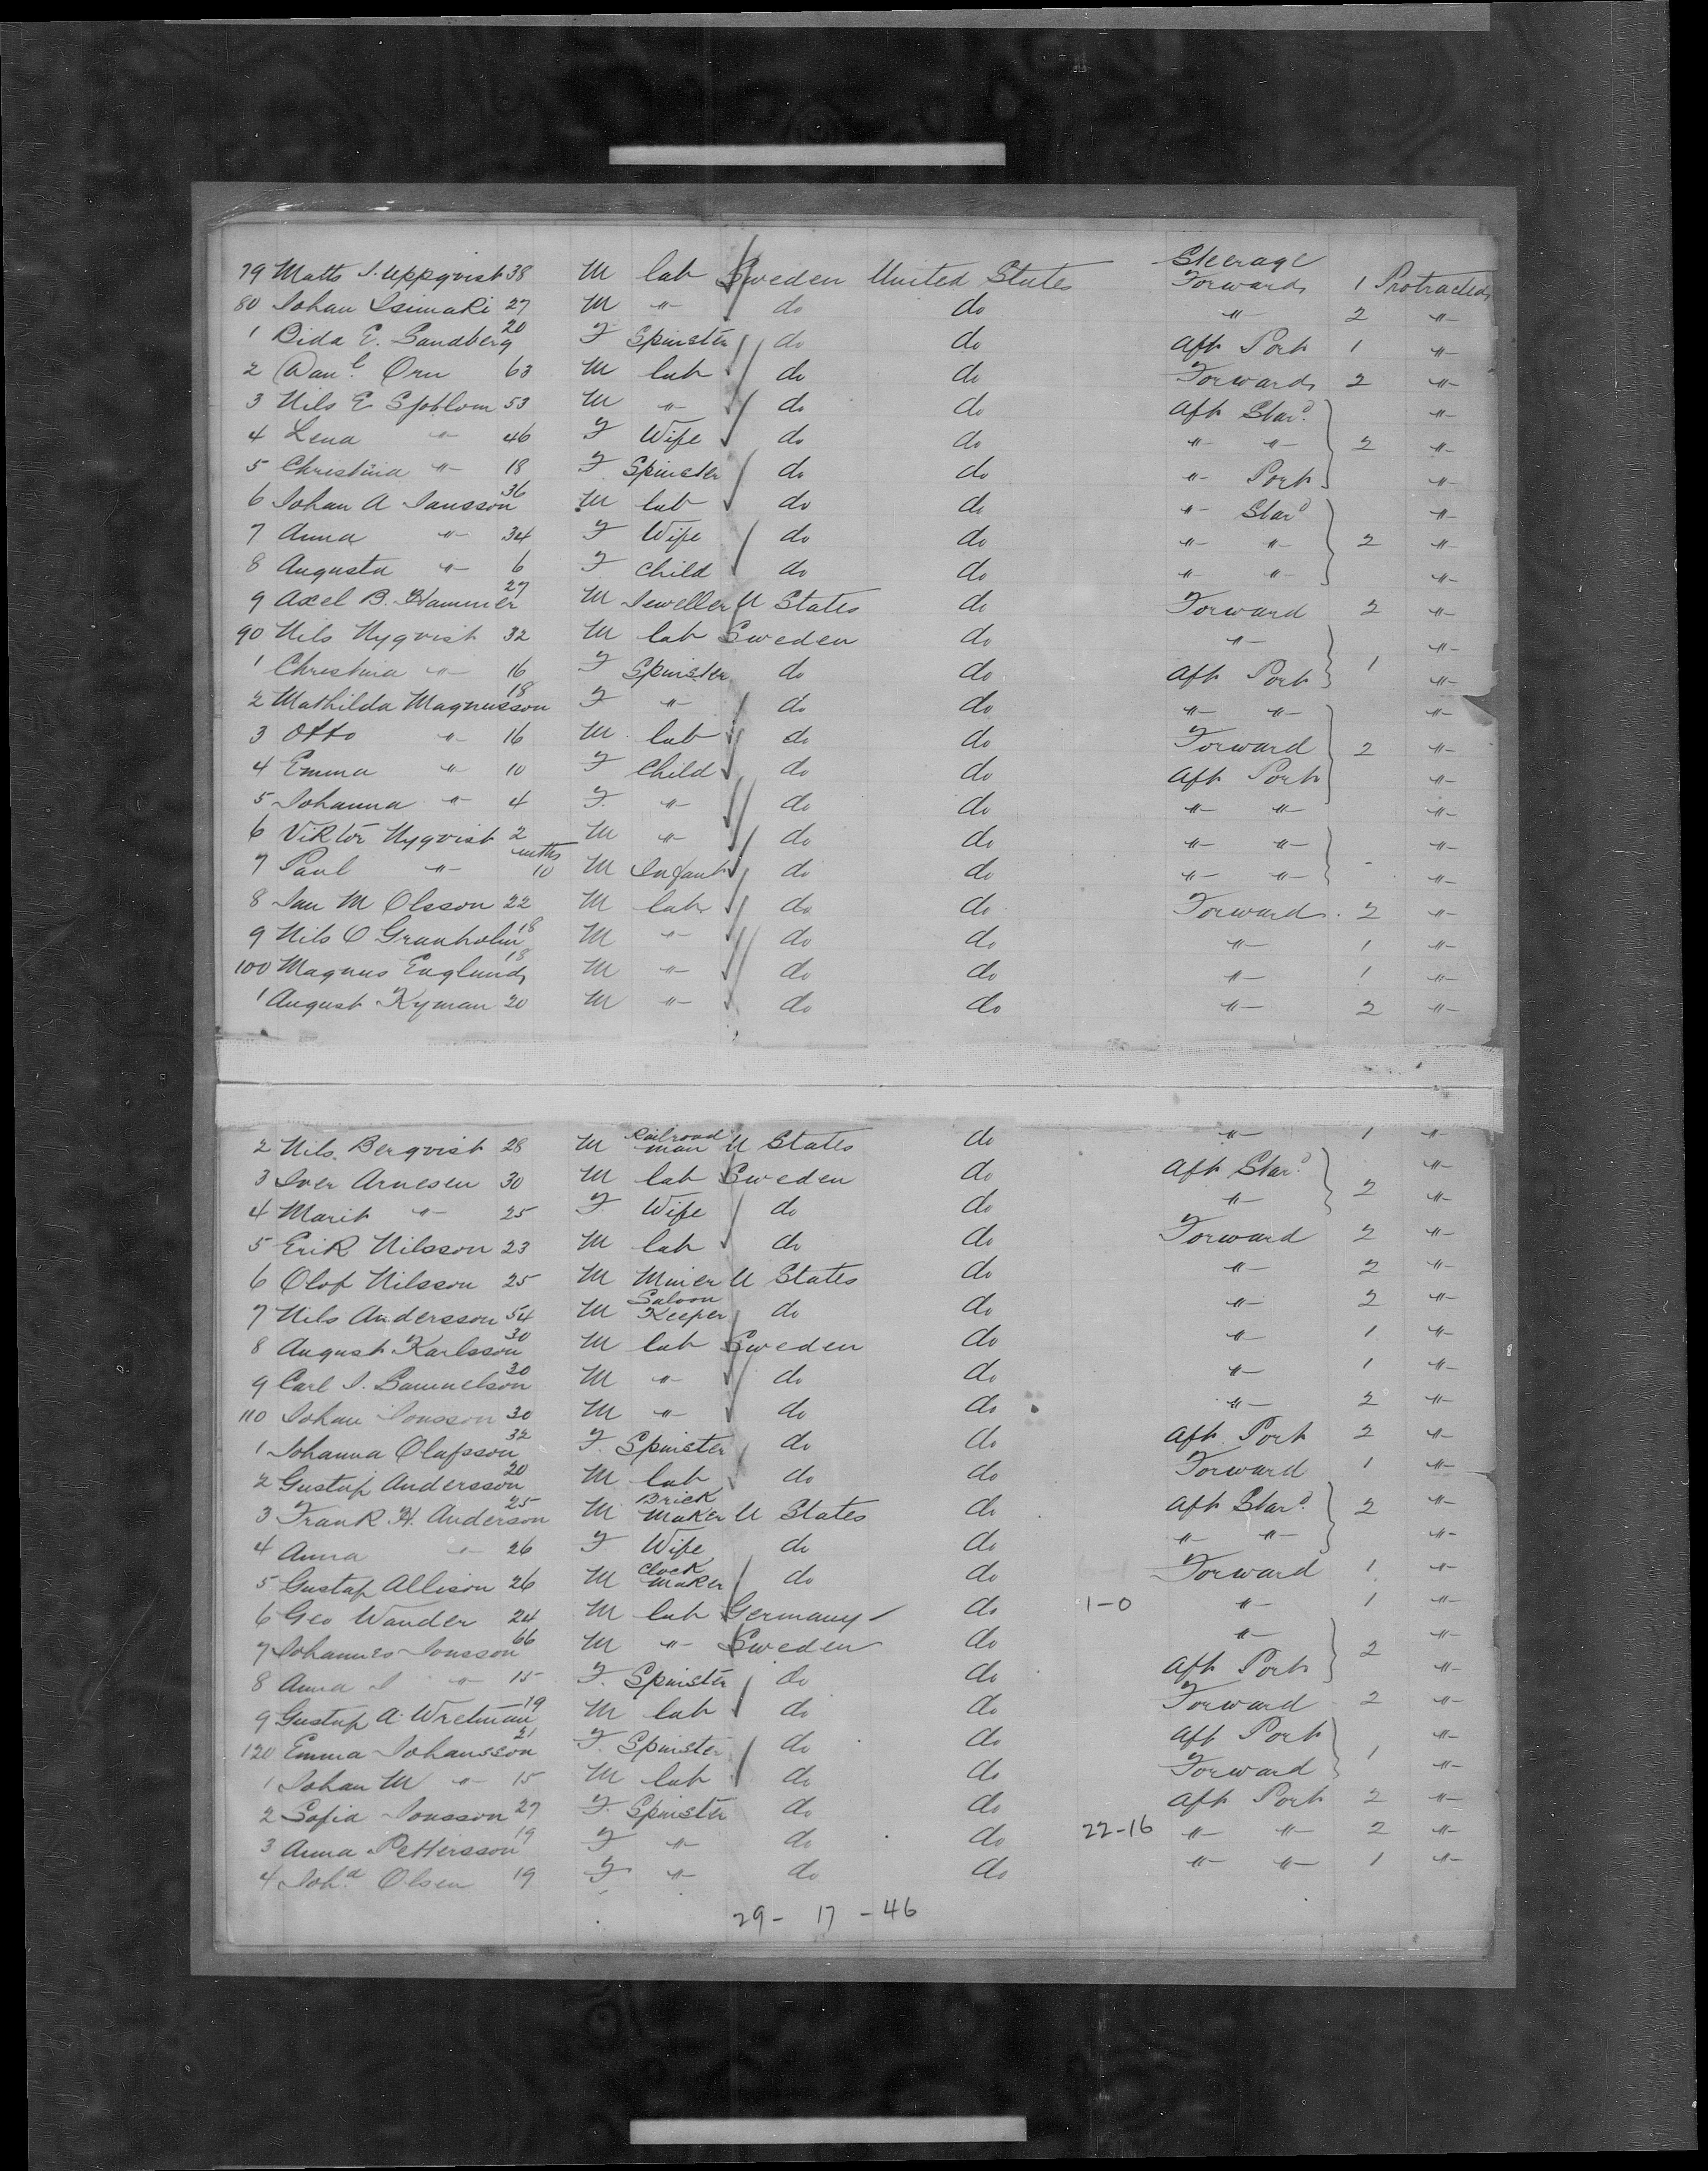 Steerage
79 Matts J. Uppqvist 38 M lab Sweden United States Forwards 1 Protracted
80 Johan Isimaki 27 M " do do " 2 "
1 Bida E. Sandberg 20 F Spinster do do Aft Port 1 "
2 Danl. Orn 63 M lab do do Forwards 2 "
3 Nils E Sjoblom 53 M " do do Aft Stard. "
4 Lena " 46 F Wife do do " " 2 "
5 Christina " 18 F Spinster do do " Port "
6 Johan A Jansson 36 M lab do do " Stard "
7 Anna " 34 F Wife do do " " 2 "
8 Augusta " 6 F Child do do " " "
9 Axel B. Hammer 27 M Jeweller U States do Forward 2 "
90 Nils Nyqvist 32 M lab Sweden do " "
1 Christina " 16 F Spinster do do Aft Port 1 "
2 Mathilda Magnusson 18 F " do do " " "
3 Otto " 16 M lab do do Forward 2 "
4 Emma " 10 F Child do do Aft Port "
5 Johanna " 4 F. " do do " " "
6 Viktor Nyqvist 2 M " do do " " "
7 Paul " mths 10 M Infant do do " " "
8 Jan M Olsson 22 M lab do do Forward. 2 "
9 Nils O Granholm 18 M " do do " 1 "
100 Magnus Englund 18 M " do do " 1 "
1 August Kyman 20 M " do do " 2 "
2 Nils. Berqvist 28 M Railroad man U States do " 1 "
3 Iver Arnesen 30 M lab Sweden do Aft Stard. "
4 Marit " 25 F Wife do do " 2 "
5 Erik Nilsson 23 M lab do do Forward 2 "
6 Olof Nilsson 25 M Miner U States do " 2 "
7 Nils Andersson 54 M Saloon Keeper do do " 2 "
8 August Karlsson 30 M lab Sweden do " 1 "
9 Carl J. Samuelson 30 M " do do " 1 "
110 Johan Jonsson 30 M " do do " 2 "
1 Johanna Olafsson 32 F. Spinster do do Aft Port 2 "
2 Gustaf Andersson 20 M lab do do Forward 1 "
3 Frank H. Anderson 25 M Brick Maker U States do Aft Stard. 2 "
4 Anna " 26 F Wife do do " " "
5 Gustaf Allison 26 M Clock Maker do do Forward 1 "
6 Geo Wander 24 M lab Germany do 1-0 " 1 "
7 Johannes Jonsson 66 M " Sweden do " 2 "
8 Anna J " 15 F. Spinster do do Aft Port "
9 Gustaf A. Wretman 19 M lab do do Forward 2 "
120 Emma Johansson 21 F. Spinster do do Aft Port "
1 Johan M " 15 M lab do do Forward 1 "
2 Sofia Jonsson 27 F. Spinster do do Aft Port 2 "
3 Anna Pettersson 19 F " do do 22-16 " " 2 "
4 Joha Olsen 19 F " do do " " 1 "
29 - 17 - 46